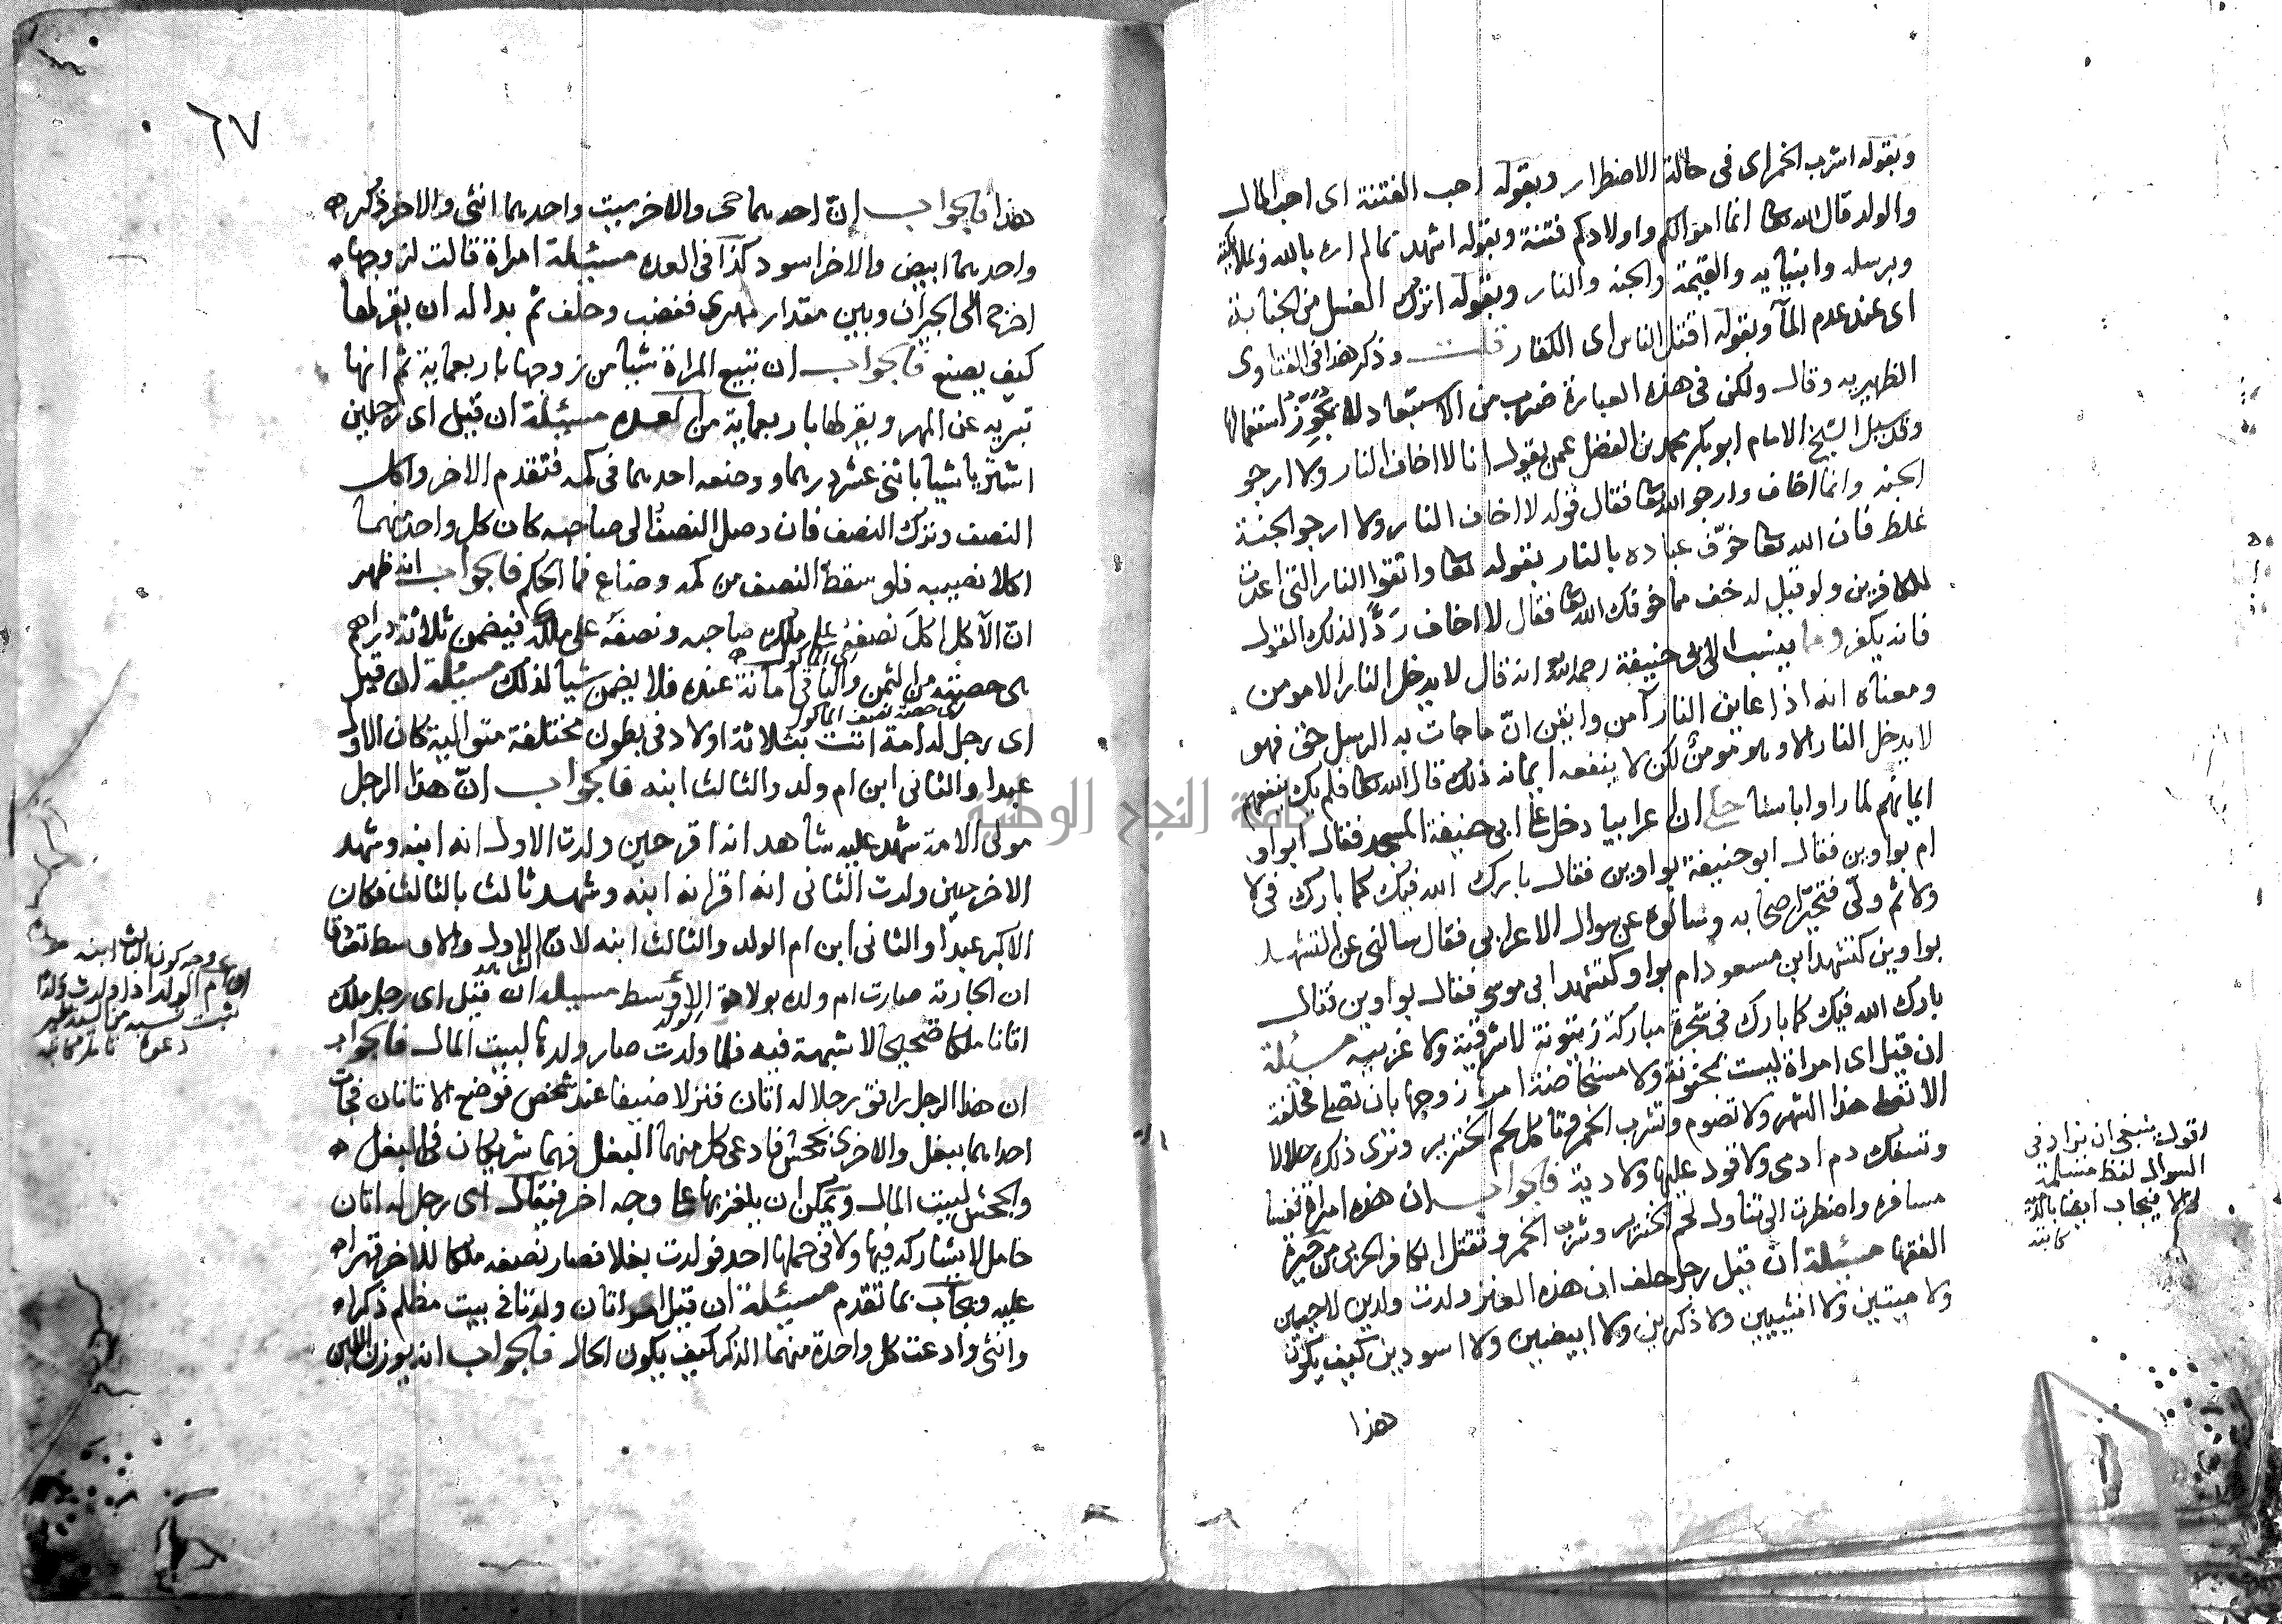 وبقوله اشرب الخمر اى فى حالة الاضطرار وبقوله احب الفتنة اى احب المال
والولد قال الله تعا انما اموالكم واولادكم فتنة وبقوله اشهد بما لم اره بالله وملائكته
وبرسله وانبيايه والقيمة والجنه والنار وبقوله اترك الغسل من الجنابة
اى عند عدم المآ وبقوله اقتل الناس اى الكفار قلت وذكر هذا فى الفتاوى
الظهيريه وقال ولكن فى هذه العبارة ضرب من الاستبعاد لا يجوز استعمالها
وقد سيل الشيخ الامام ابو بكر محمد بن الفضل عمن يقول انا لا اخاف النار ولا ارجو
الجنه وانما اخاف وارجو الله تعا فقال قوله لا اخاف النار ولا ارجو الجنة
غلط فان الله تعا خوّف عباده بالنار بقوله تعا واتقوا النار التى اعدت
للكافرين ولو قيل له خف مما خوفك الله تعا فقال لا اخاف ردًّا لذلك القول
فانه يكفر وما ينسب الى ابى حنيفة رحمه الله انه قال لا يدخل النار الا مومن
ومعناه انه اذا عاين النار آمن وايقن انّ ما جات به الرسل حق فهو
لا يدخل النار الا وهو مومن لكن لا ينفعه ايمانه ذلك قال الله تعا فلم يك ينفعهم
ايمانهم لما راوا باسنا حكى ان اعرابيا دخل على ابى حنيفة المسجد فقال ابواو
ام بواوين فقال ابو حنيفة بواوين فقال بارك الله فيك كما بارك فى لا
ولا ثم ولّى فتحيّر اصحابه وسالوه عن سوال الاعرابى فقال سالنى عن التشهد
بواوين كتشهد ابن مسعود ام بواو كتشهد ابى موسى فقال بواوين فقال
بارك الله فيك كما بارك فى شجرة مباركة زيتونة لا شرقية ولا غربيه مسئلة
ان قيل اى امراة ليست بمجنونة ولا مستحاضة امر زوجها بان تصلى فحلفت
الا تصلى هذا الشهر ولا تصوم وتشرب الخمر وتاكل لحم الخنزير وترى ذلك حلالا
وتسفك دم ادمى ولا قود عليها ولا دية فالجواب ان هذه امراة نفسا
مسافره واضطرت الى تناول لحم الخنزير وشرب الخمر وتقتل الكافر الحربى من حيرة
الفقها مسئلة ان قيل رجل حلف ان هذه العنز ولدت ولدين لا حيين
ولا ميتين ولا انثيين ولا ذكرين ولا ابيضين ولا اسودين كيف يكون
هذا
اقول ينبغى ان يزاد فى
السوال لفظ مسلمة
كاتبه
٦٧
هذا فالجواب انّ احدهما حى والاخر ميت واحدهما انثى والاخر ذكر
واحدهما ابيض والاخر اسود كذا فى العده مسئلة امراة قالت لزوجها
اخرج الى الجيران وبين مقدار مهرى فغضب وحلف ثم بدا له ان يقر لها
كيف يصنع فالجواب ان تبيع المراة شيا من زوجها باربعماية ثم انها
تبريه عن المهر ويقر لها باربعماية من العده مسئلة ان قيل اى رجلين
اشتريا شيا باثنى عشر درهما ووضعه احدهما فى كمه فتقدم الاخر واكل
النصف وترك النصف فان وصل النصف الى صاحبه كان كل واحد منهما
اكلا نصيبه فلو سقط النصف من كمه وضاع فما الحكم فالجواب انه ظهر
انّ الآكل اكل نصفه على ملك صاحبه ونصفه على ملكه فيضمن ثلاثة دراهم
هى حصته من الثمن والباقى امانة عنده فلا يضمن شيا لذلك مسئلة ان قيل
اى حصة نصف الماكول
اى رجل له امة اتت بثلاثة اولاد فى بطون مختلفة متوالية كان الاول
عبدا والثانى ابن ام ولد والثالث ابنه فالجواب انّ هذا الرجل
مولى الامة شهد عليه شاهد انه اقر حين ولدت الاول انه ابنه وشهد
الاخر حين ولدت الثانى انه اقر انه ابنه وشهد ثالث بالثالث فكان
الاكبر عبدًا والثانى ابن ام الولد والثالث ابنه لانّ الاول والاوسط تصادقا
ان الجارية صارت ام ولد بولادة الاوسط مسيلة ان قيل اى رجل ملك
اتانا ملكا صحيحا لا شبهة فيه فلما ولدت صار ولدها لبيت المال فالجواب
ان هذا الرجل رافق رجلا له اتان فنزلا ضيفا عند شخص فوضع الاتانان فجات
احداهما ببغل والاخرى بجحش فادعى كل منهما البغل فهما شريكان فى البغل
والجحش لبيت المال ويمكن ان يلغز بها على وجه اخر فيقال اى رجل له اتان
حامل لا يشاركه فيها ولا فى حملها احد فولدت بغلا فصار نصفه ملكا للاخر قهرا
عليه ويجاب بما تقدم مسيئلة ان قيل امراتان ولدتا فى بيت مظلم ذكرا
وانثى وادعت كل واحدة منهما الذكر كيف يكون الحال فالجواب انه يوزن اللبن
وجه كون الثالث ابنه
ام الولد اذا ولدت ولدا
ثبت نسبه من السيد بغير
دعوة